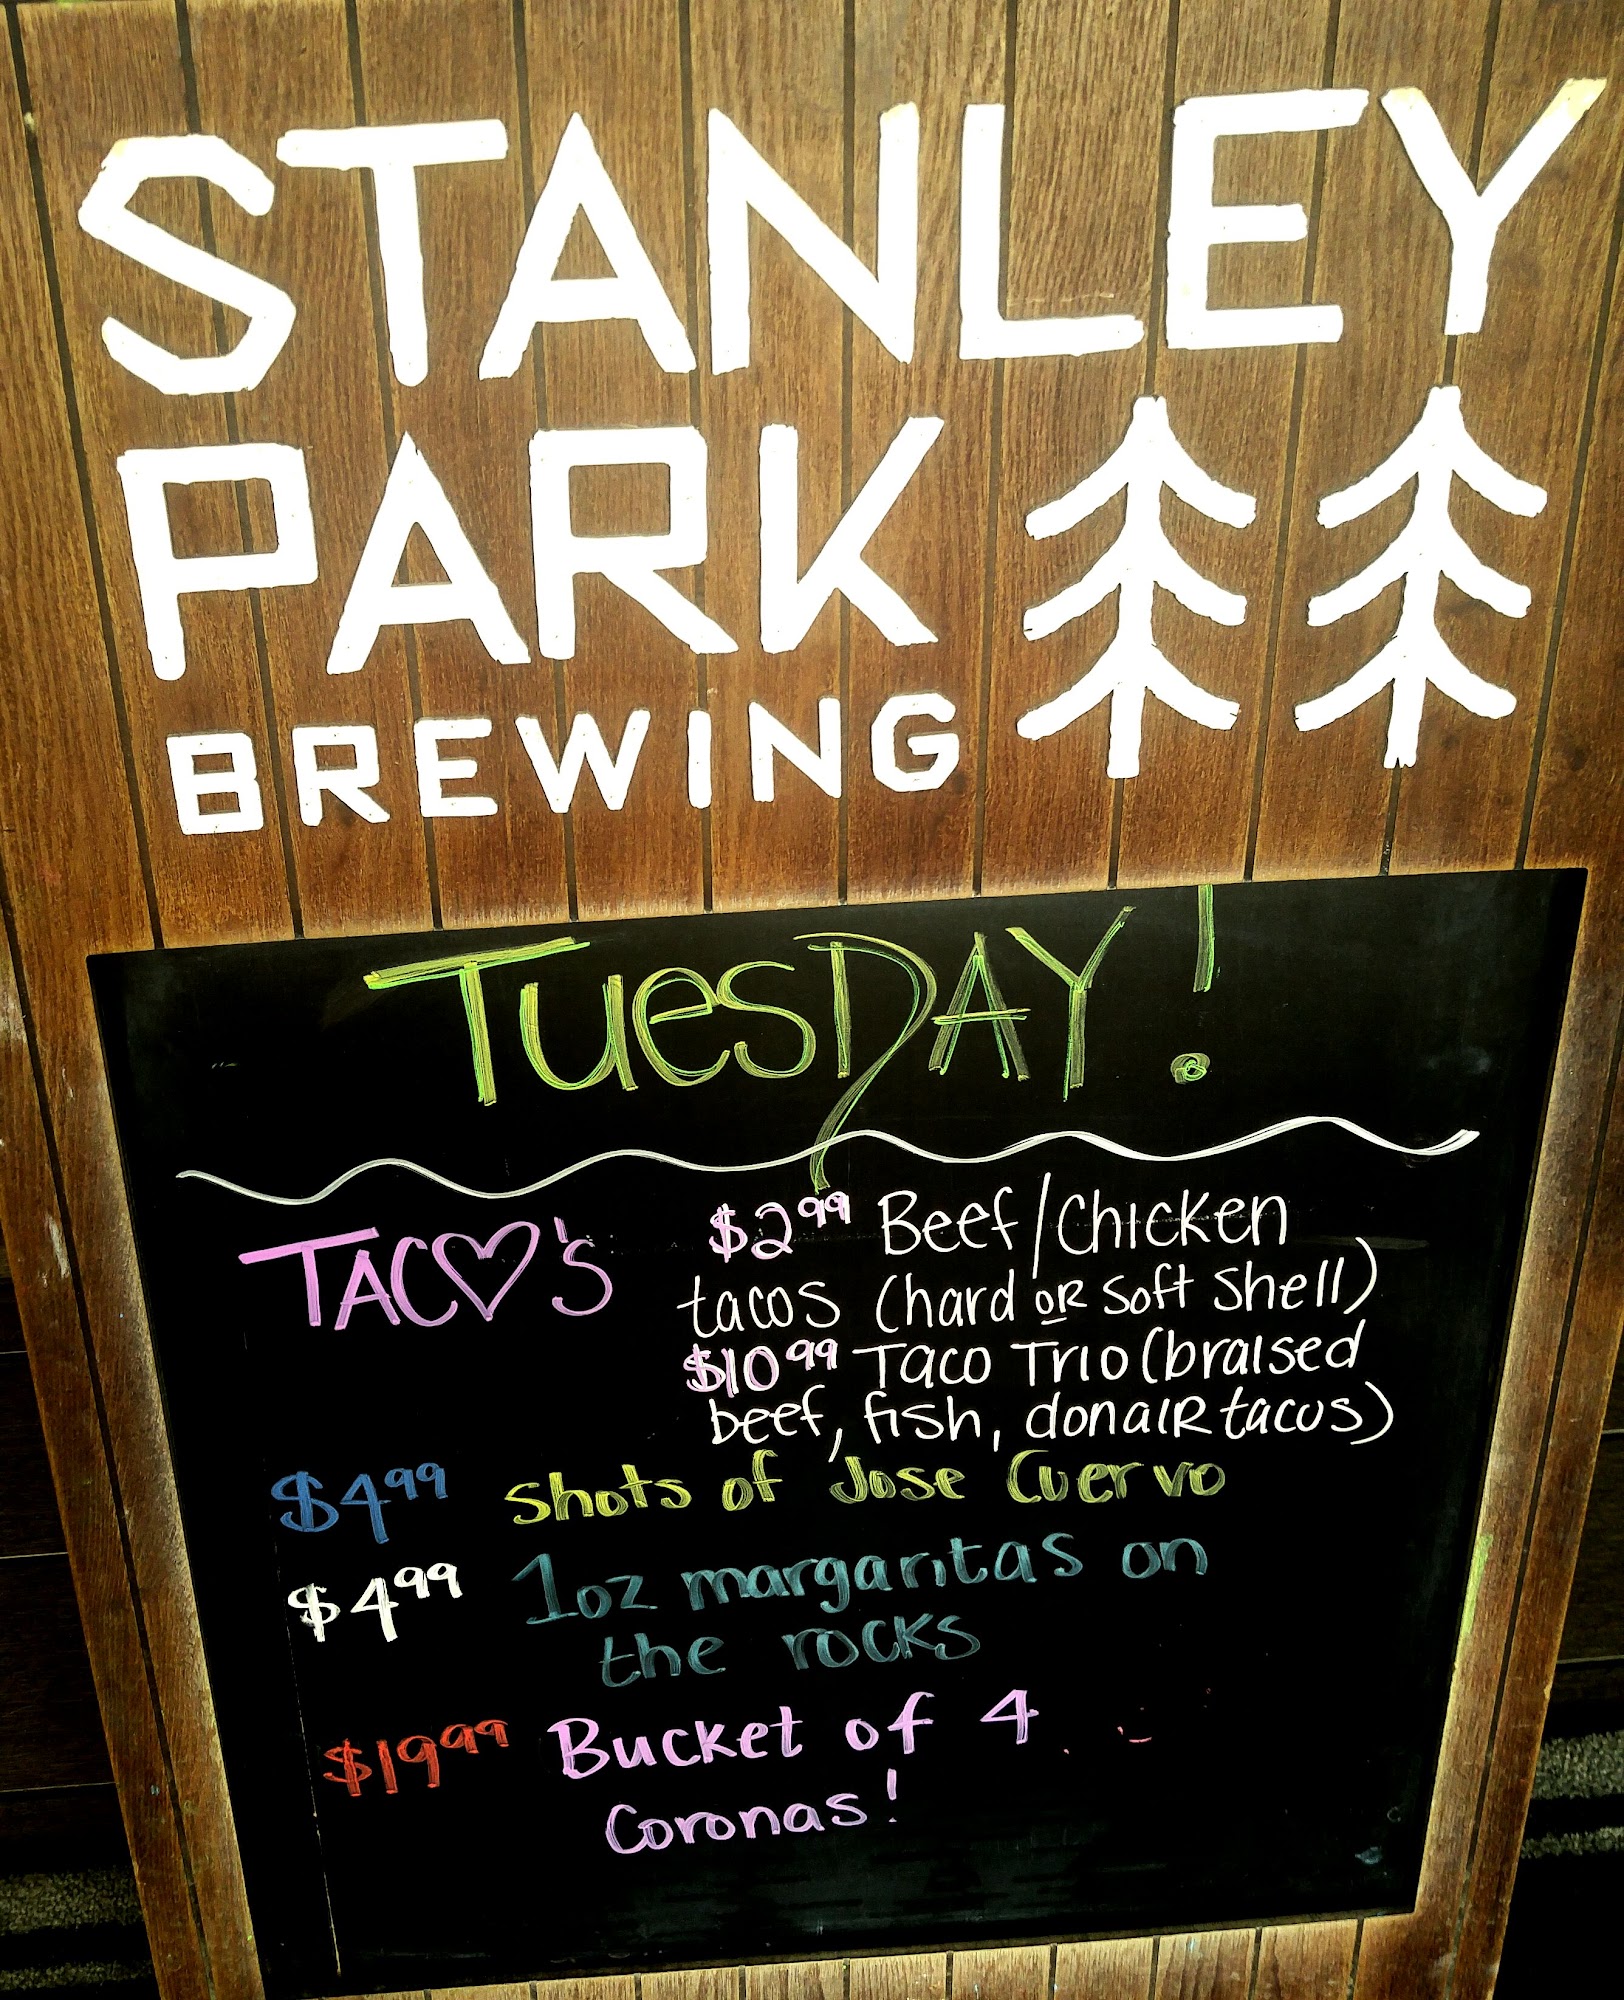 STANLEY
PARK
BREWING
TUesDAY!
TACO's
$2.99 Beef/Chicken
tacos (hard OR Soft Shell)
$10.99 Taco Trio (braised
beef, fish, donaiR tacos)
$4.99 Shots of Jose Cuervo
$4.99 1oz margaritas on
the rocks
$19.99 Bucket of 4
Coronas!